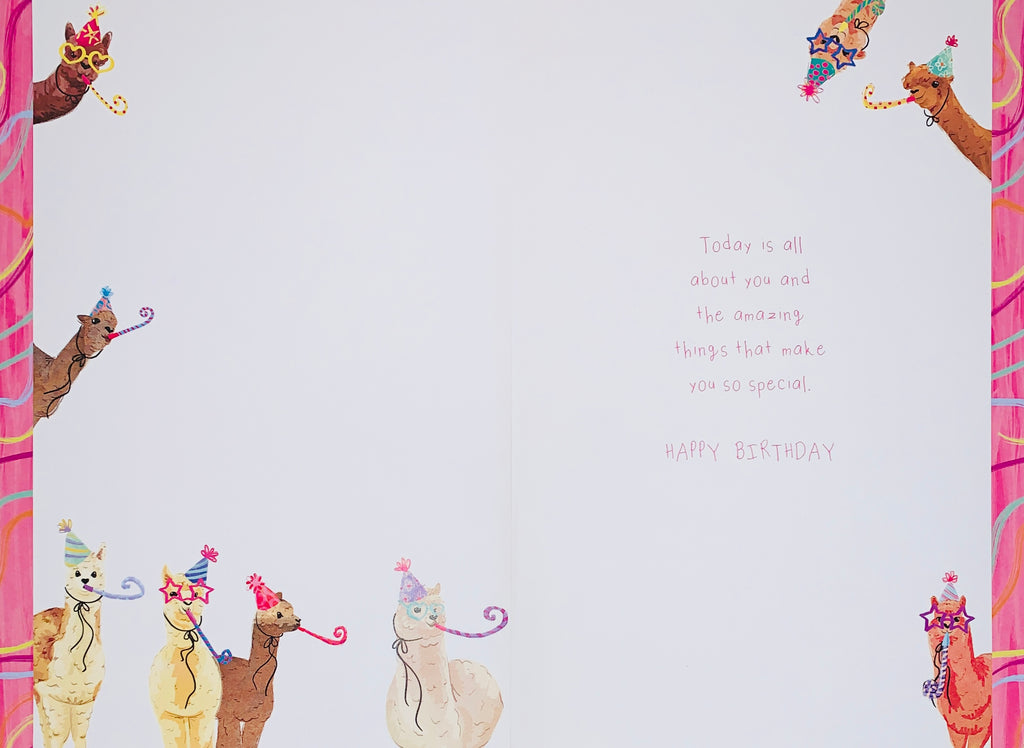 Today is all
about you and
the amazing
things that make
you so special.
HAPPY BIRTHDAY